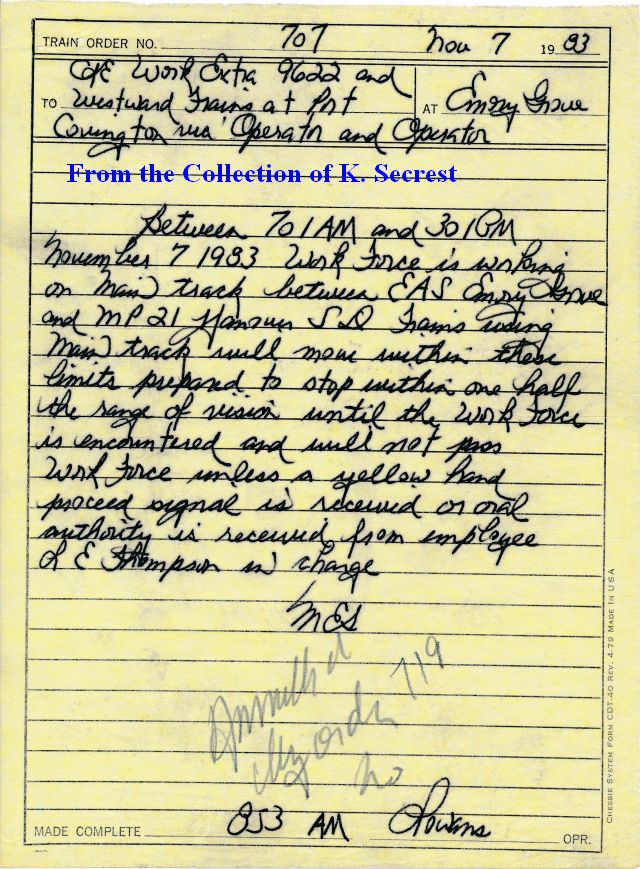 TRAIN ORDER NO. 707 Nov 7 1983
C&E Work Extra 9622 and
TO Westward Trains at Port AT Emory Grove
Covington via Operator and Operator
From the Collection of K. Secrest
Between 701 AM and 301 PM
November 7 1983 Work Force is working
on Main track between EAS Emory Grove
and MP 21 Hanover SD Trains using
Main track will move within these
limits prepared to stop within one half
the range of vision until the Work Force
is encountered and will not pass
Work Force unless a yellow hand
proceed signal is received or oral
authority is received from employee
L E Thompson in charge
MES
Annulled
By order 719
No
MADE COMPLETE 853 AM Owens OPR.
CHESSIE SYSTEM FORM CDT-40 REV. 4-79 MADE IN USA